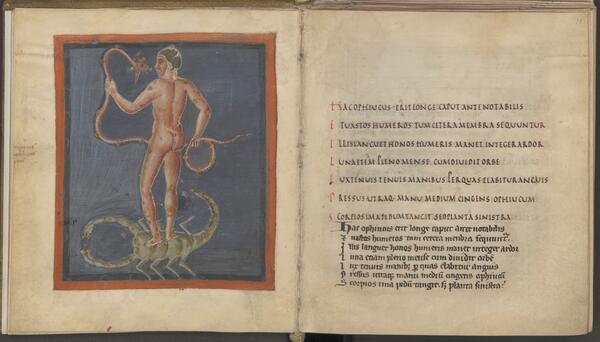 HAC OPHIUCUS ERIT LONGE CAPUT ANTE NOTABILIS
ET UASTOS HUMEROS TUM CETERA MEMBRA SEQUUNTUR
ILLIS LANGUET HONOS HUMERIS MANET INTEGER ARDOR
LUNA ETIAM PLENO MENSE CUM DIUIDIT ORBE
LUX TENUIS MANIBUS PER QUAS ELABITUR ANGUIS
PRESSUS UTRAQ· MANU MEDIUM CINGENS OPHIUCUM
SCORPIOS IMA PEDUM TANGIT SED PLANTA SINISTRA
Hac ophiuus erit longe caput ante notabilis
Et uastos humeros tum cetera membra sequuntur
Illis languet honos humeris manet integer ardor
Luna etiam pleno mense cum diuidit orbe
Lux tenuis manib; per quas elabitur anguis
Pressus utraq; manu medium cingens ophiucum
Scorpios ima pedum tangit sed planta sinistra